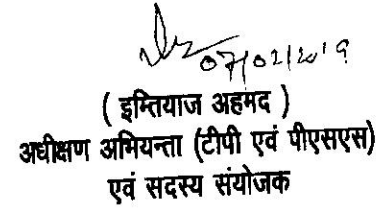 07/02/2019
( इम्तियाज अहमद )
अधीक्षण अभियन्ता (टीपी एवं पीएसएस)
एवं सदस्य संयोजक